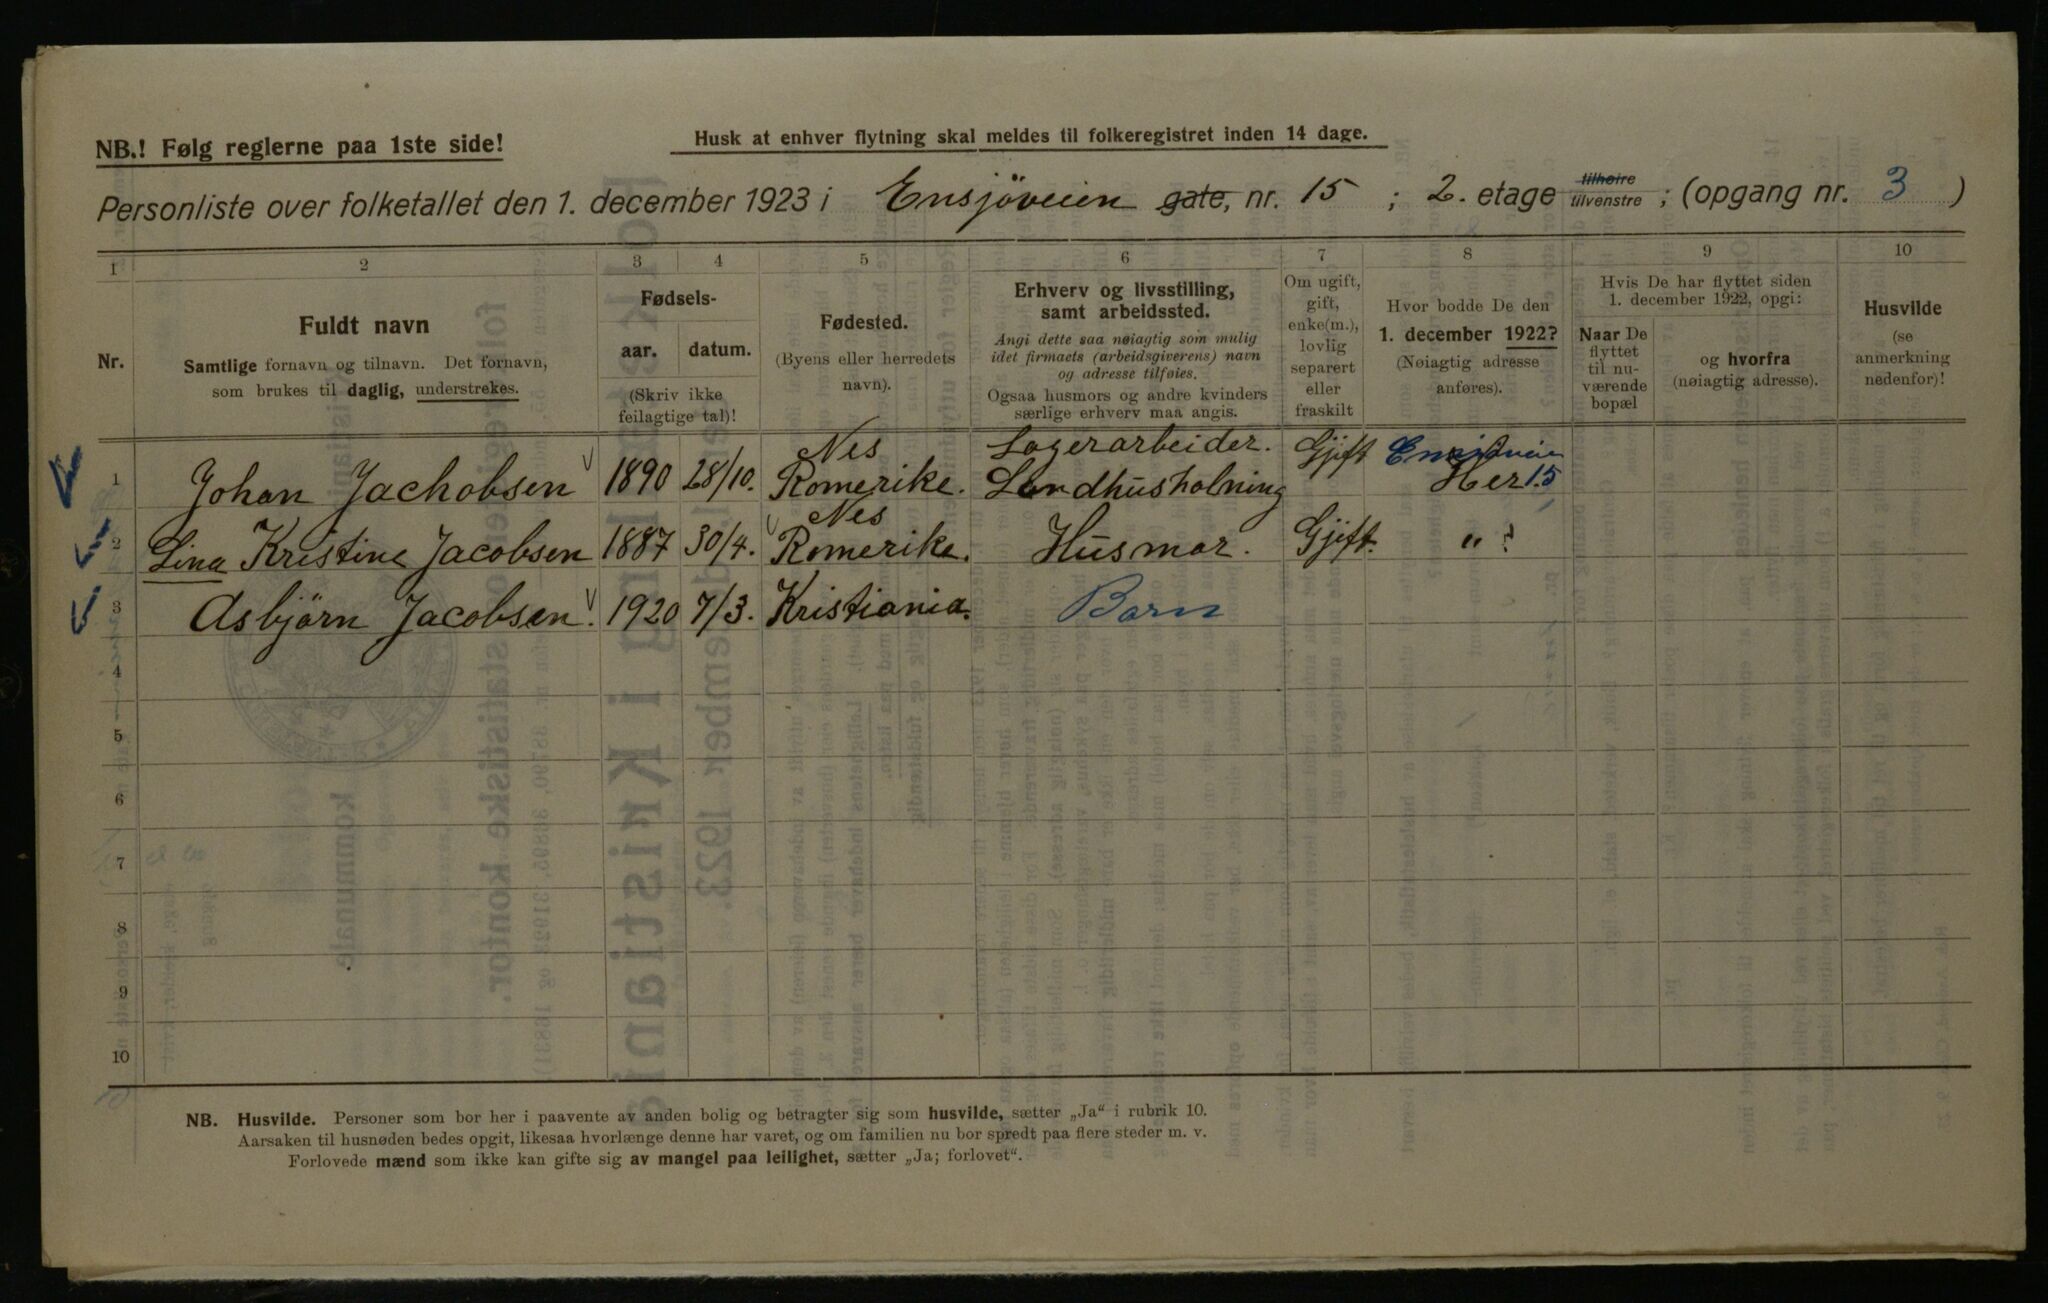 NB.! Følg reglerne paa 1ste side!
Husk at enhver flytning skal meldes til folkeregistret inden 14 dage.
Personliste over folketallet den 1. december 1923 i Ensjöveien gate, nr. 15 ; 2. etage tilhøire tilvenstre ; (opgang nr. 3 )
1 2 3 4 5 6 7 8 9 10
Nr.
Fuldt navn
Samtlige fornavn og tilnavn. Det fornavn,
som brukes til daglig, understrekes.
Fødsels-
aar. datum.
(Skriv ikke
feilagtige tal)!
Fødested.
(Byens eller herredets
navn).
Erhverv og livsstilling,
samt arbeidssted.
Angi dette saa nøiagtig som mulig
idet firmaets (arbeidsgiverens) navn
og adresse tilføies.
Ogsaa husmors og andre kvinders
særlige erhverv maa angis.
Om ugift,
gift,
enke(m.),
lovlig
separert
eller
fraskilt
Hvor bodde De den
1. december 1922?
(Nøiagtig adresse
anføres).
Hvis De har flyttet siden
1. december 1922, opgi:
Naar De
flyttet
til nu-
værende
bopæl
og hvorfra
(nøiagtig adresse).
Husvilde
(se
anmerkning
nedenfor)!
1 Johan Jachobsen 1890 28/10. Nes Romerike. Lagerarbeider. Landhusholning Gjift Her 15
2 Lina Kristine Jacobsen 1887 30/4. Nes Romerike. Husmor. Gjift. " ?
3 Asbjörn Jacobsen. 1920 7/3. Kristiania. Barn
4
5
6
7
8
9
10
NB. Husvilde. Personer som bor her i paavente av anden bolig og betragter sig som husvilde, sætter „Ja“ i rubrik 10.
Aarsaken til husnøden bedes opgit, likesaa hvorlænge denne har varet, og om familien nu bor spredt paa flere steder m. v.
Forlovede mænd som ikke kan gifte sig av mangel paa leilighet, sætter „Ja; forlovet“.